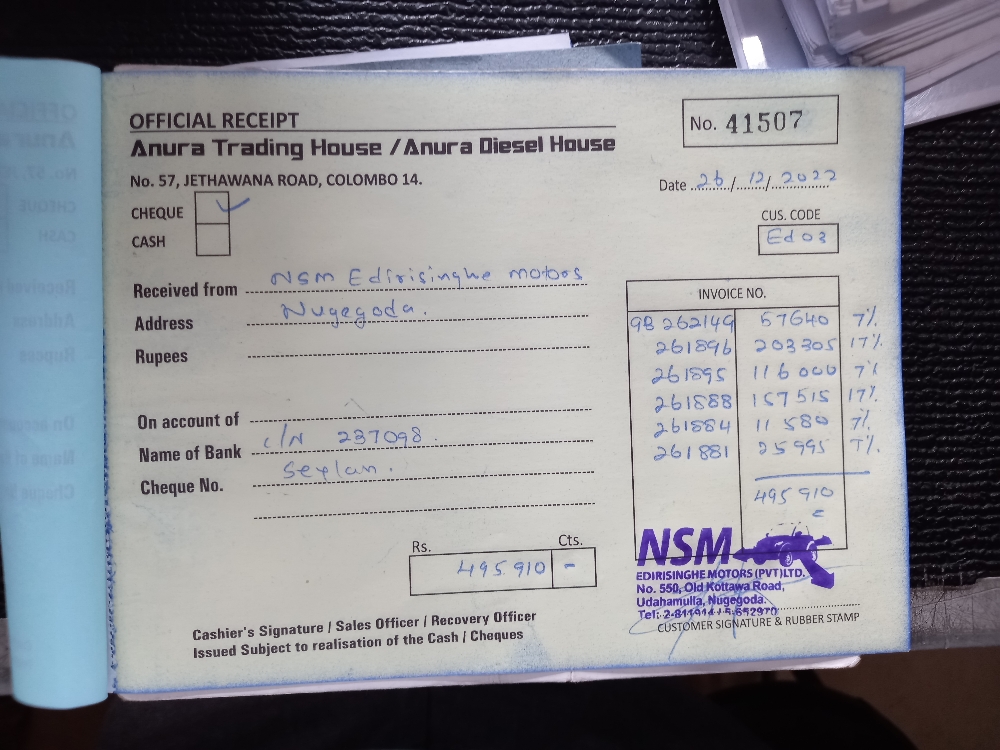 OFFICIAL RECEIPT
No. 41507
Anura Trading House / Anura Diesel House
No. 57, JETHAWANA ROAD, COLOMBO 14.
Date 26/12/2022
CHEQUE ✓
CASH
CUS. CODE
Ed 03
Received from NSM Edirisinghe motors
Address Nugegoda.
Rupees
On account of
Name of Bank c/N 237098.
Cheque No. Seylan.
INVOICE NO.
GB 262149 57640 7%
261896 203305 17%
261895 116000 7%
261888 157515 17%
261884 11580 7%
261881 25995 7%
495 910
Rs. Cts.
495 910 -
NSM
EDIRISINGHE MOTORS (PVT) LTD.
No. 550, Old Kottawa Road,
Udahamulla, Nugegoda.
Tel:
CUSTOMER SIGNATURE & RUBBER STAMP
Cashier's Signature / Sales Officer / Recovery Officer
Issued Subject to realisation of the Cash / Cheques